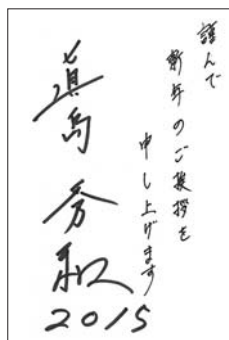 謹んで
新年のご挨拶を
申し上げます
眞島秀和
2015